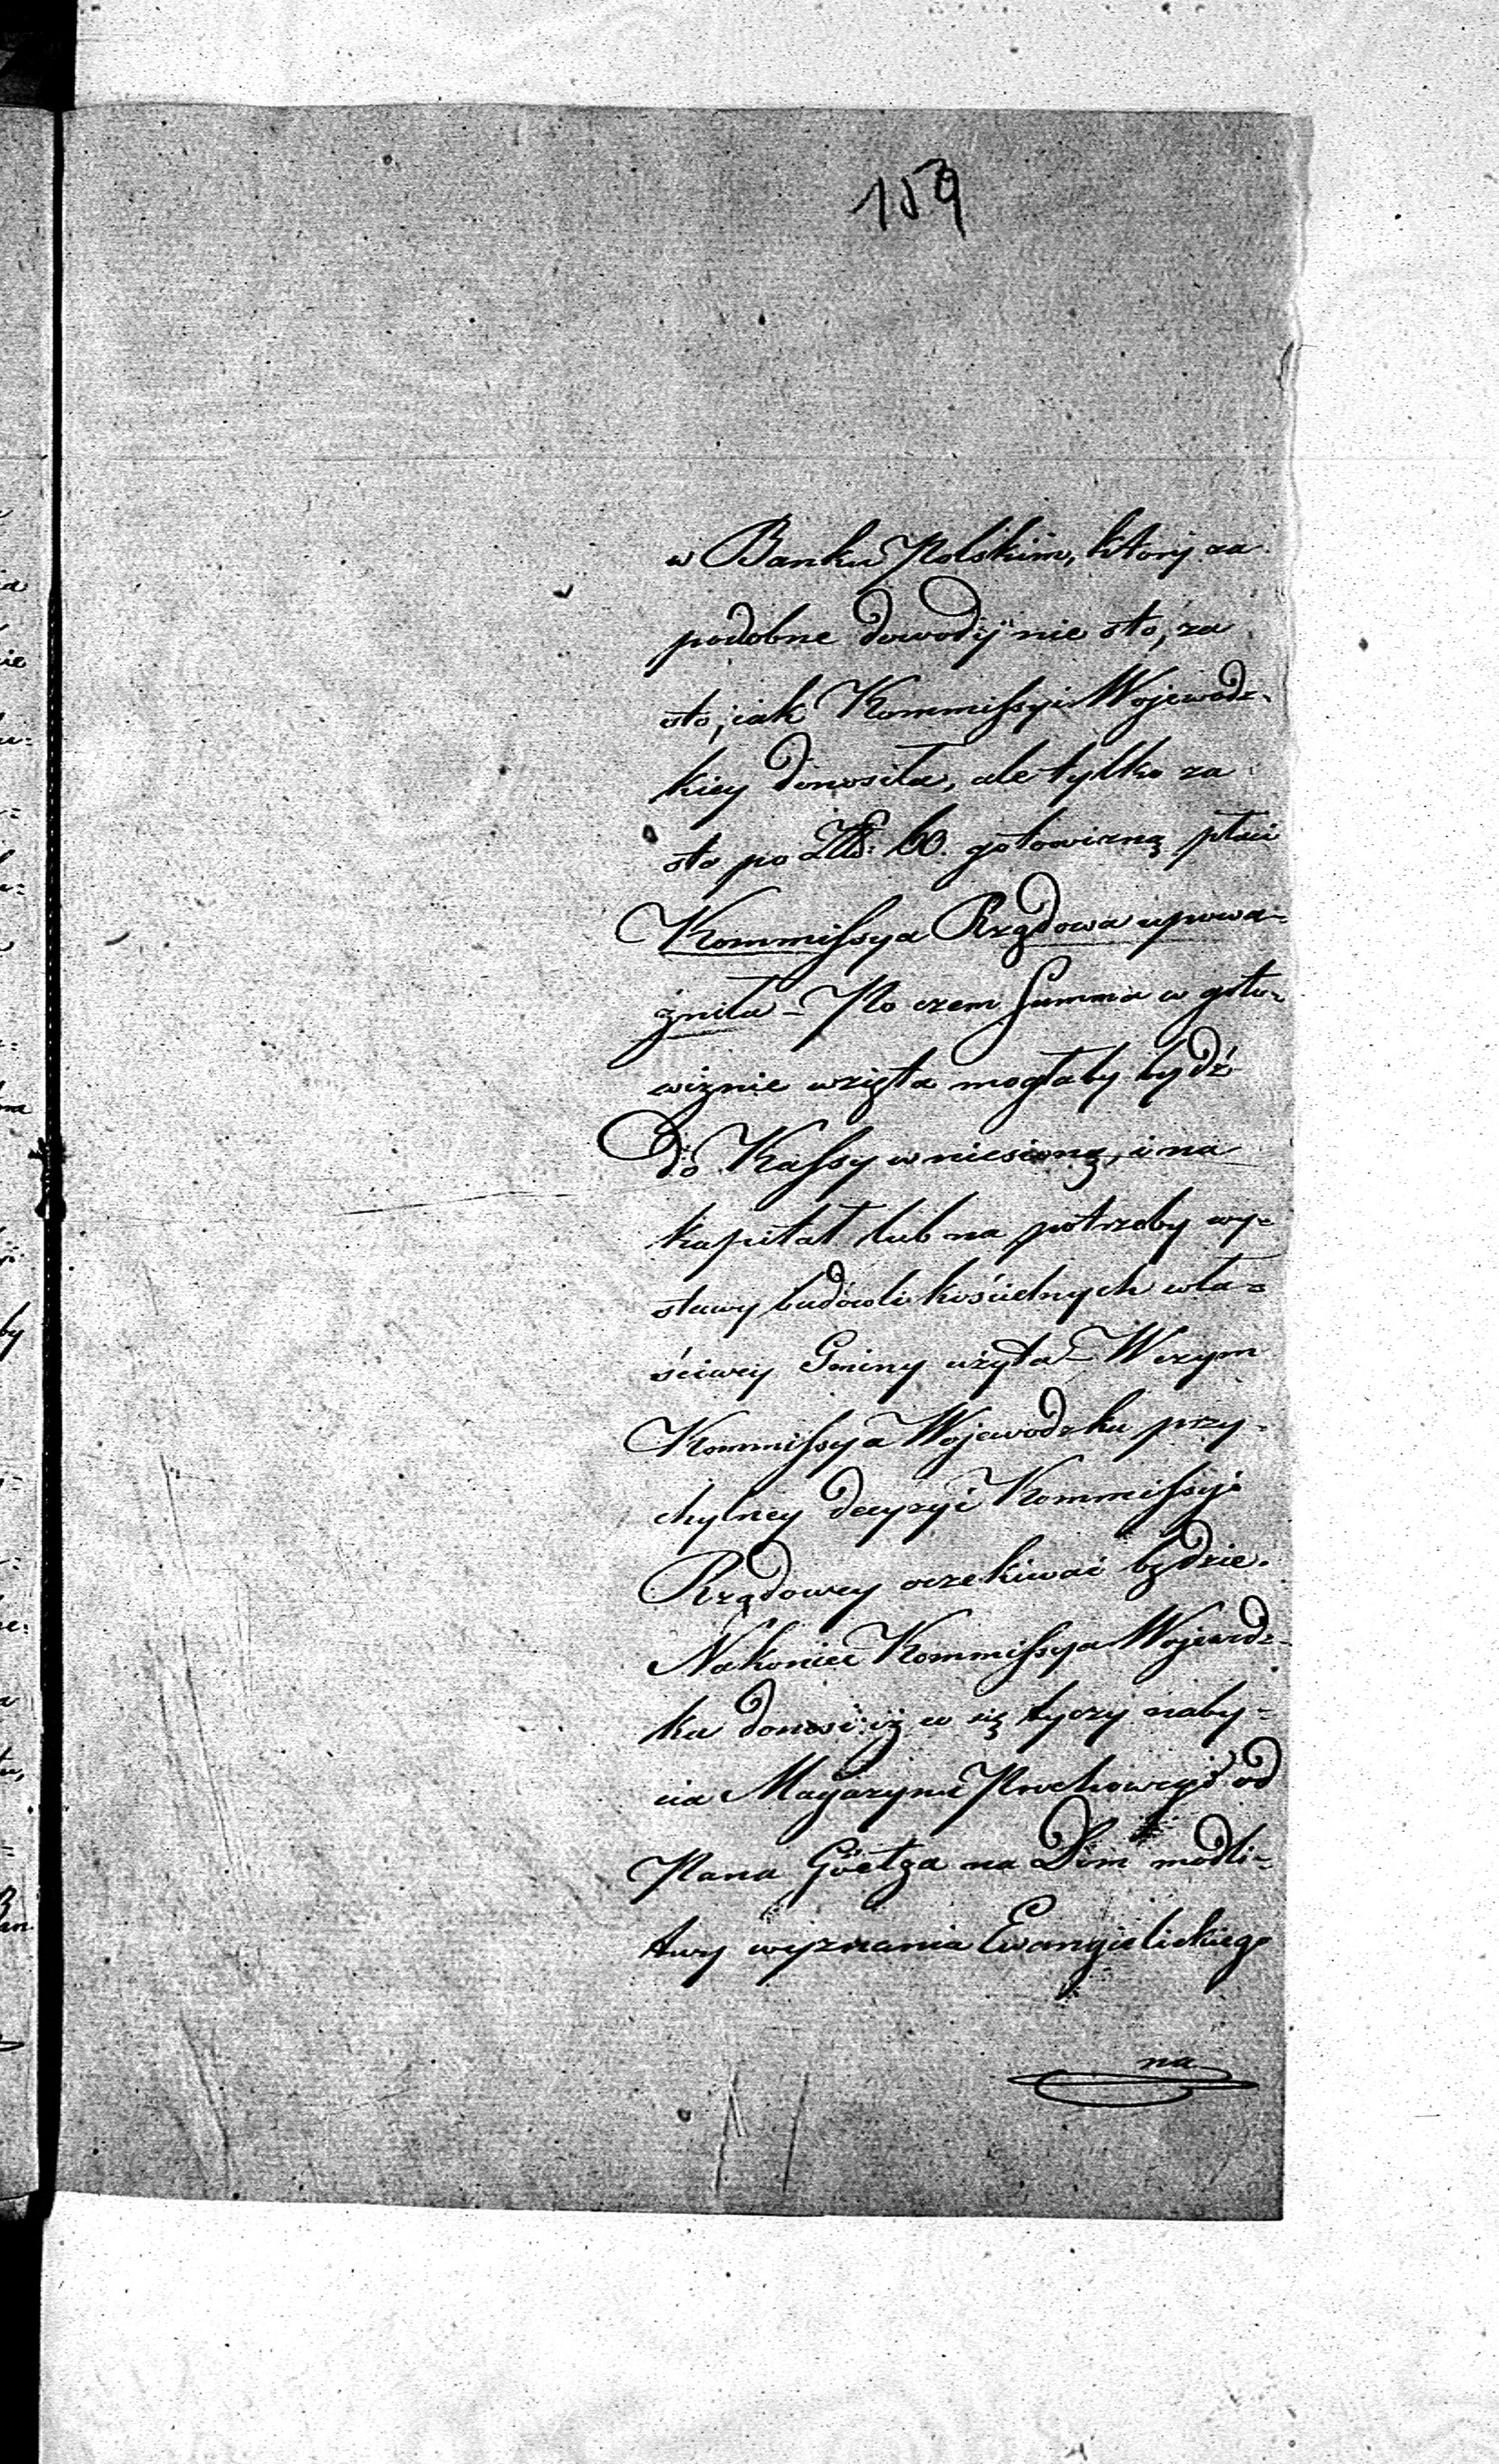 159
w Banku Polskim, który za
podobne dowody nie sto, za
sto, jak Kommissyi Wojewodz-
kiey donosiła, ale tylko za
sto po 60. gotowizną płaci
Kommissya Rządowa upowa-
żniła - Po czem Summa w goto-
wiznie wzięta mogłaby bydź
do Kassy wniesioną, i na
kapitał lub na potrzeby wy-
stawy budowli kościelnych wła-
ściwey Gminy użyta - W czym
Kommissya Wojewodzka przy-
chylney decyzyi Kommissyi
Rządowey oczekiwać będzie.
Nakoniec Kommissya Wojewodz-
ka donosi iż co się tyczy naby-
cia Magazynu Prochowego od
Pana Göetza na Dom modli-
twy wyznania Ewangielickiego
na